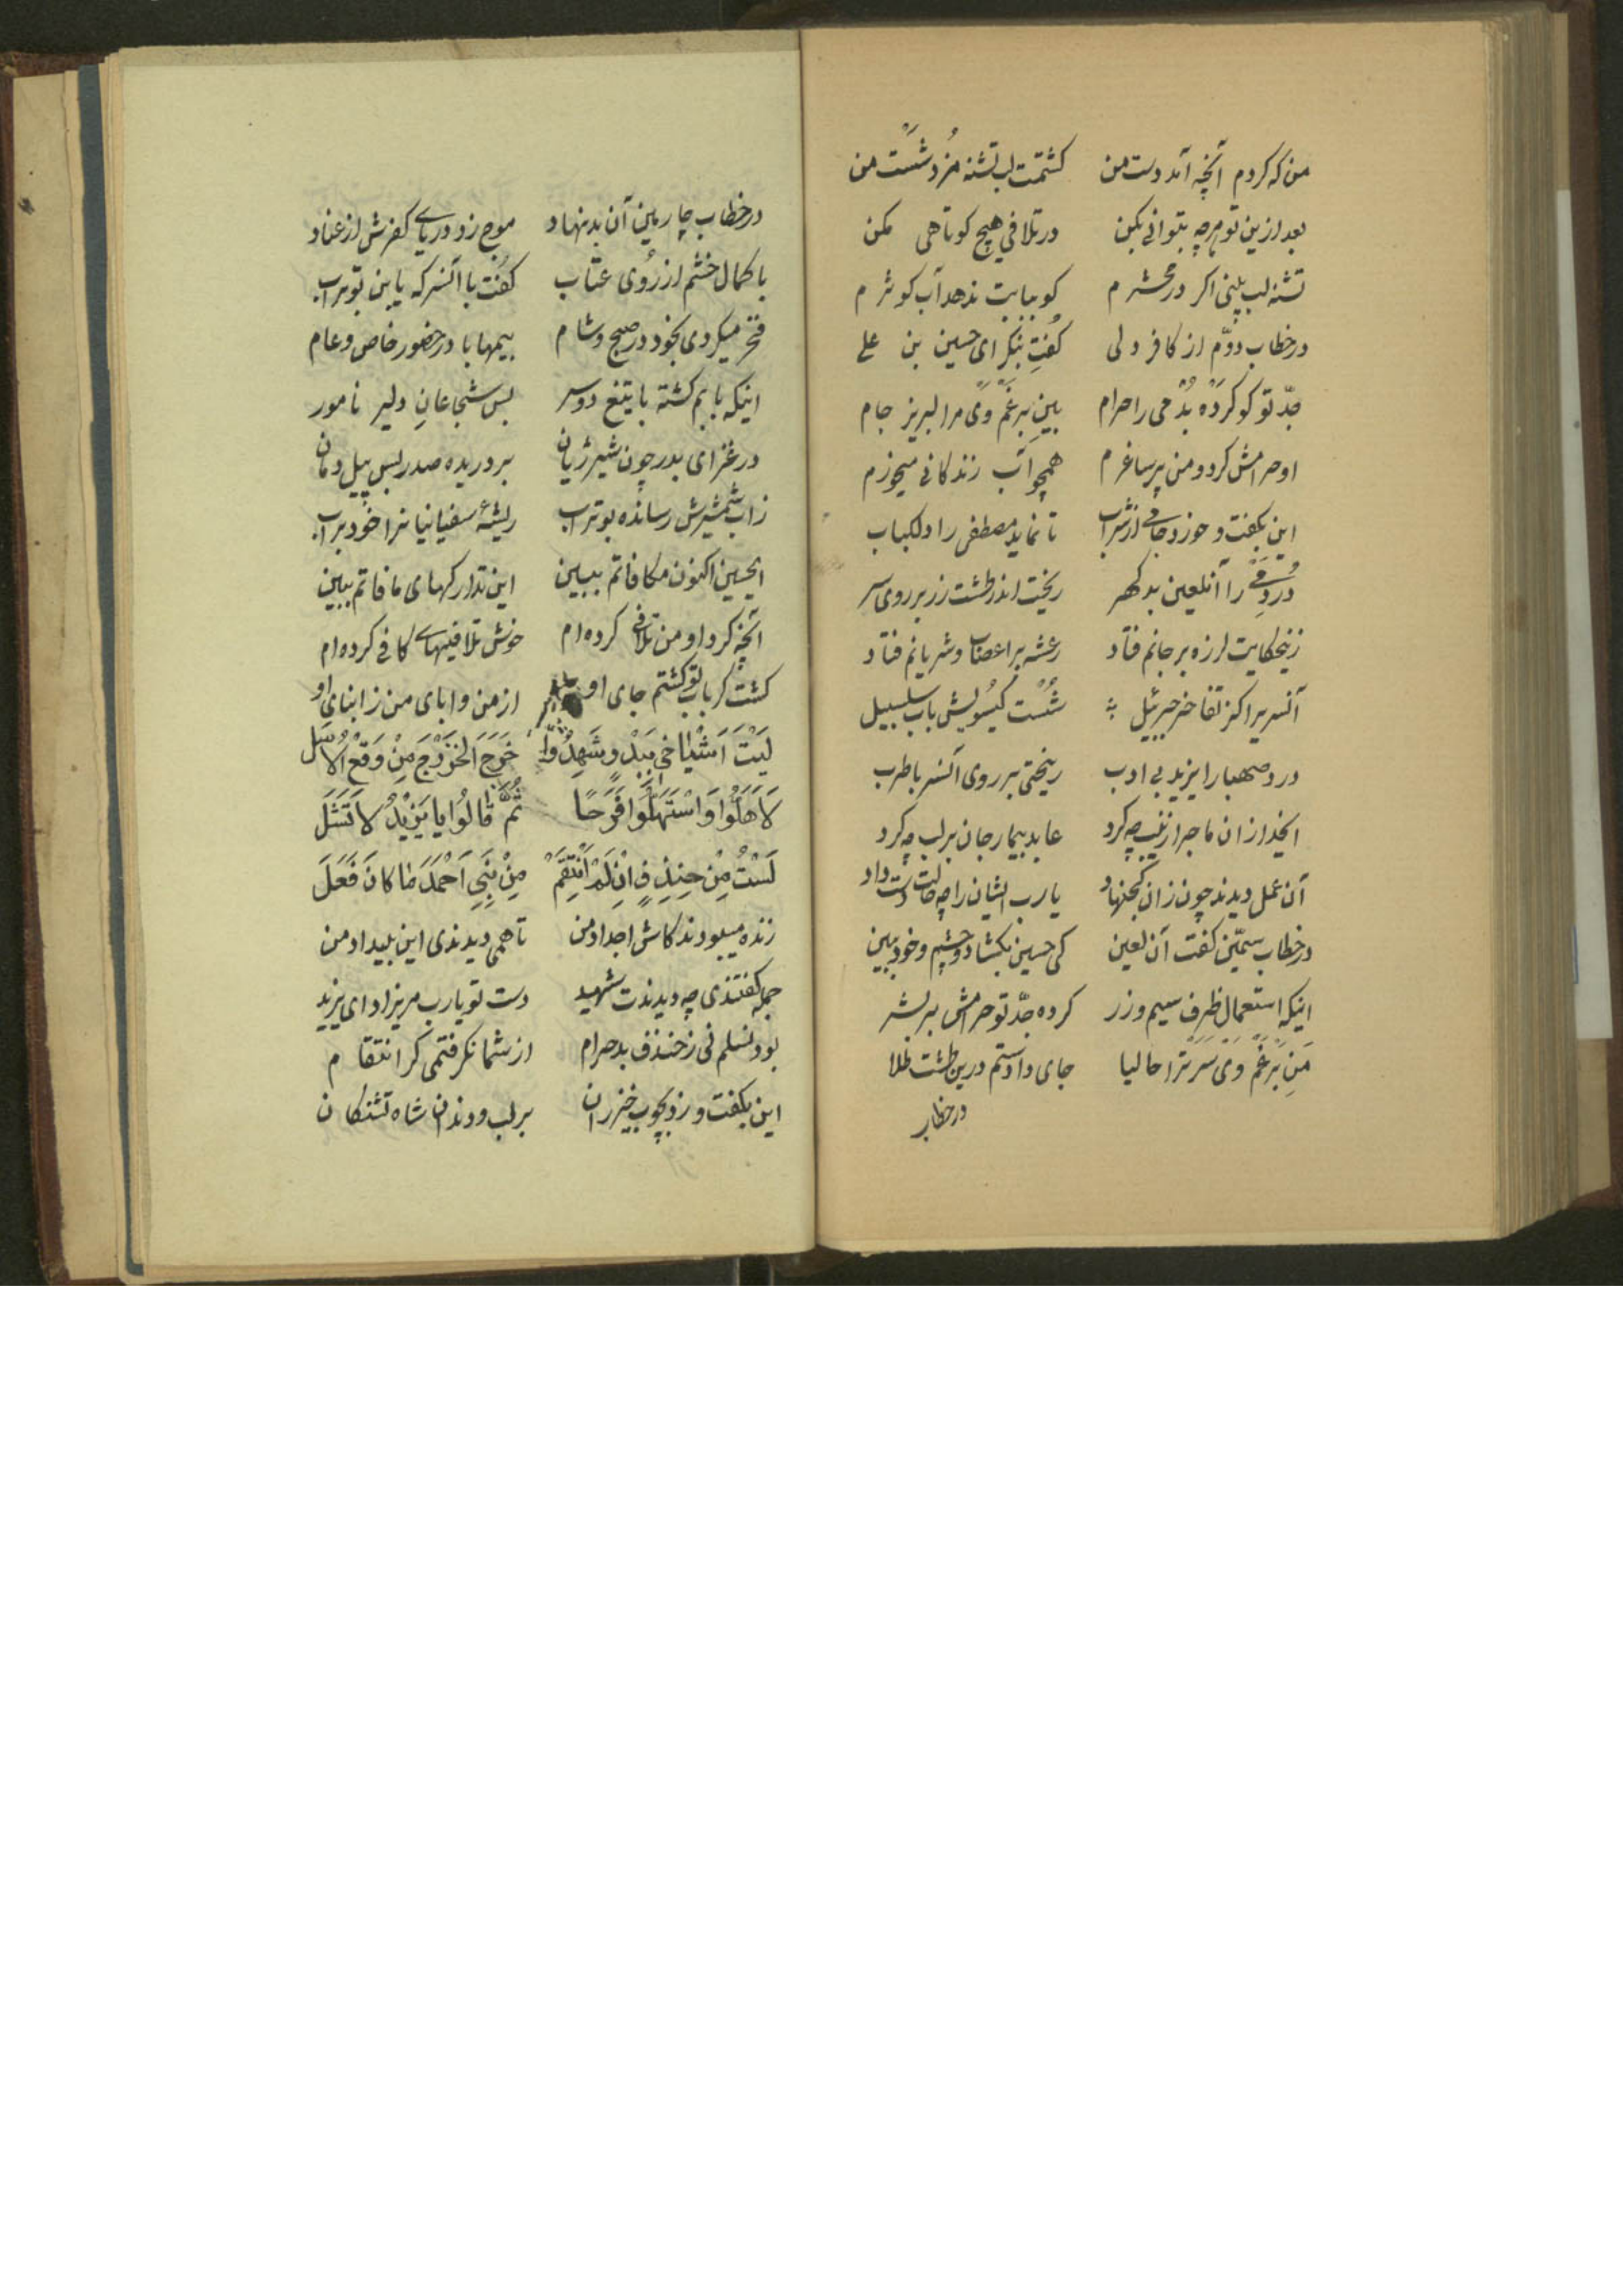 من که کردم آنچه آمد دست من کشتمت لب تشنه مُزد شست من
بعد ازین تو هرچه بتوانی بکن در تلافی هیچ کوتاهی مکن
تشنه لب بینی اکر در محشرم کو ببابت ندهد آب کوثرم
در خطاب دوّم از کافر دلی کفت بنکر ای حسین بن علی
جدّ تو کو کرده بُد می را حرام بین برغم وی مرا لبریز جام
او حرامش کرد و من پر ساغرم همچو آب زندکانی میخورم
این بکفت و خورد جامی از شراب تا نماید مصطفی را دلکباب
دُرد می را آنلعین بد کهر ریخت اندر طشت زر بر روی سر
زینحکایت لرزه بر جانم فتاد رعشه بر اعصاب و شریانم فتاد
آنسریرا کز تفاخر جبرئیل شُست کیسویش باب سلسبیل
درد صهبا را یزید بی ادب ریختی بر روی آنسر با طرب
ایخدا زان ماجرا زینب چه کرد عابد بیمار جان بر لب چه کرد
آن عمل دیدند چون زان کجنهاد یا رب ایشان را چه حالت دست داد
در خطاب سیمّین کفت آن لعین کی حسین بکشا دو چشم و خود ببین
اینکه استعمال ظرف سیم و زر کرده جدّ تو حرامش بر بشر
من برغم وی سرترا حالیا جای دادستم درین طشت طلا
در خطاب
در خطاب چارمین آن بدنهاد موج زد دریای کفرش از عناد
با کمال خشم از رُوی عتاب کفت با آنسر که یا بن بوتراب
فخر میکردی بخود در صبح و شام بیمهابا در حضور خاص و عام
اینکه بابم کشته با تیغ دو سر بس شجاعانِ دلیر نامور
در غزای بدر چون شیر ژیان بر دریده صدر بس پیل دمان
ز آب شمشیرش رسانده بوتراب ریشهٔ سفیانیانرا خود برآب
ایحسین اکنون مکافاتم ببین این تدارکهای مافاتم ببین
آنچه کرد او من تلافی کرده ام خوش تلافیهای کافی کرده ام
کشت کر باب تو کشتم جای او از من و ابای من ز ابنای او
لَیْتَ اَشْیاخی بِبَدْرٍ شَهِدُوا خَرَجَ الخَزْرَجَ مِنْ وَقْعِ الْاَسَل
لَاَهَلُّوا وَاسْتَهَلُّوا فَرَحًا ثُمَّ قالُوا یا یَزیْدُ لا تَشَلَ
لَسْتُ مِنْ خِنْذِفٍ اِنْ لَمْ اَنْتَقِمْ مِنْ بَنِی اَحْمَدَ ما کانَ فَعَلَ
زنده میبودند کاش اجداد من تا همی دیدندی این بیداد من
جمله کفتندی چه دیدندت شهید دست تو یارب مریزاد ای یزید
بود نسلم نی ز خندف بد حرام از شما نکرفتمی کر انتقام
این بکفت و زد بچوب خیزران بر لب و دندان شاه تشنکان